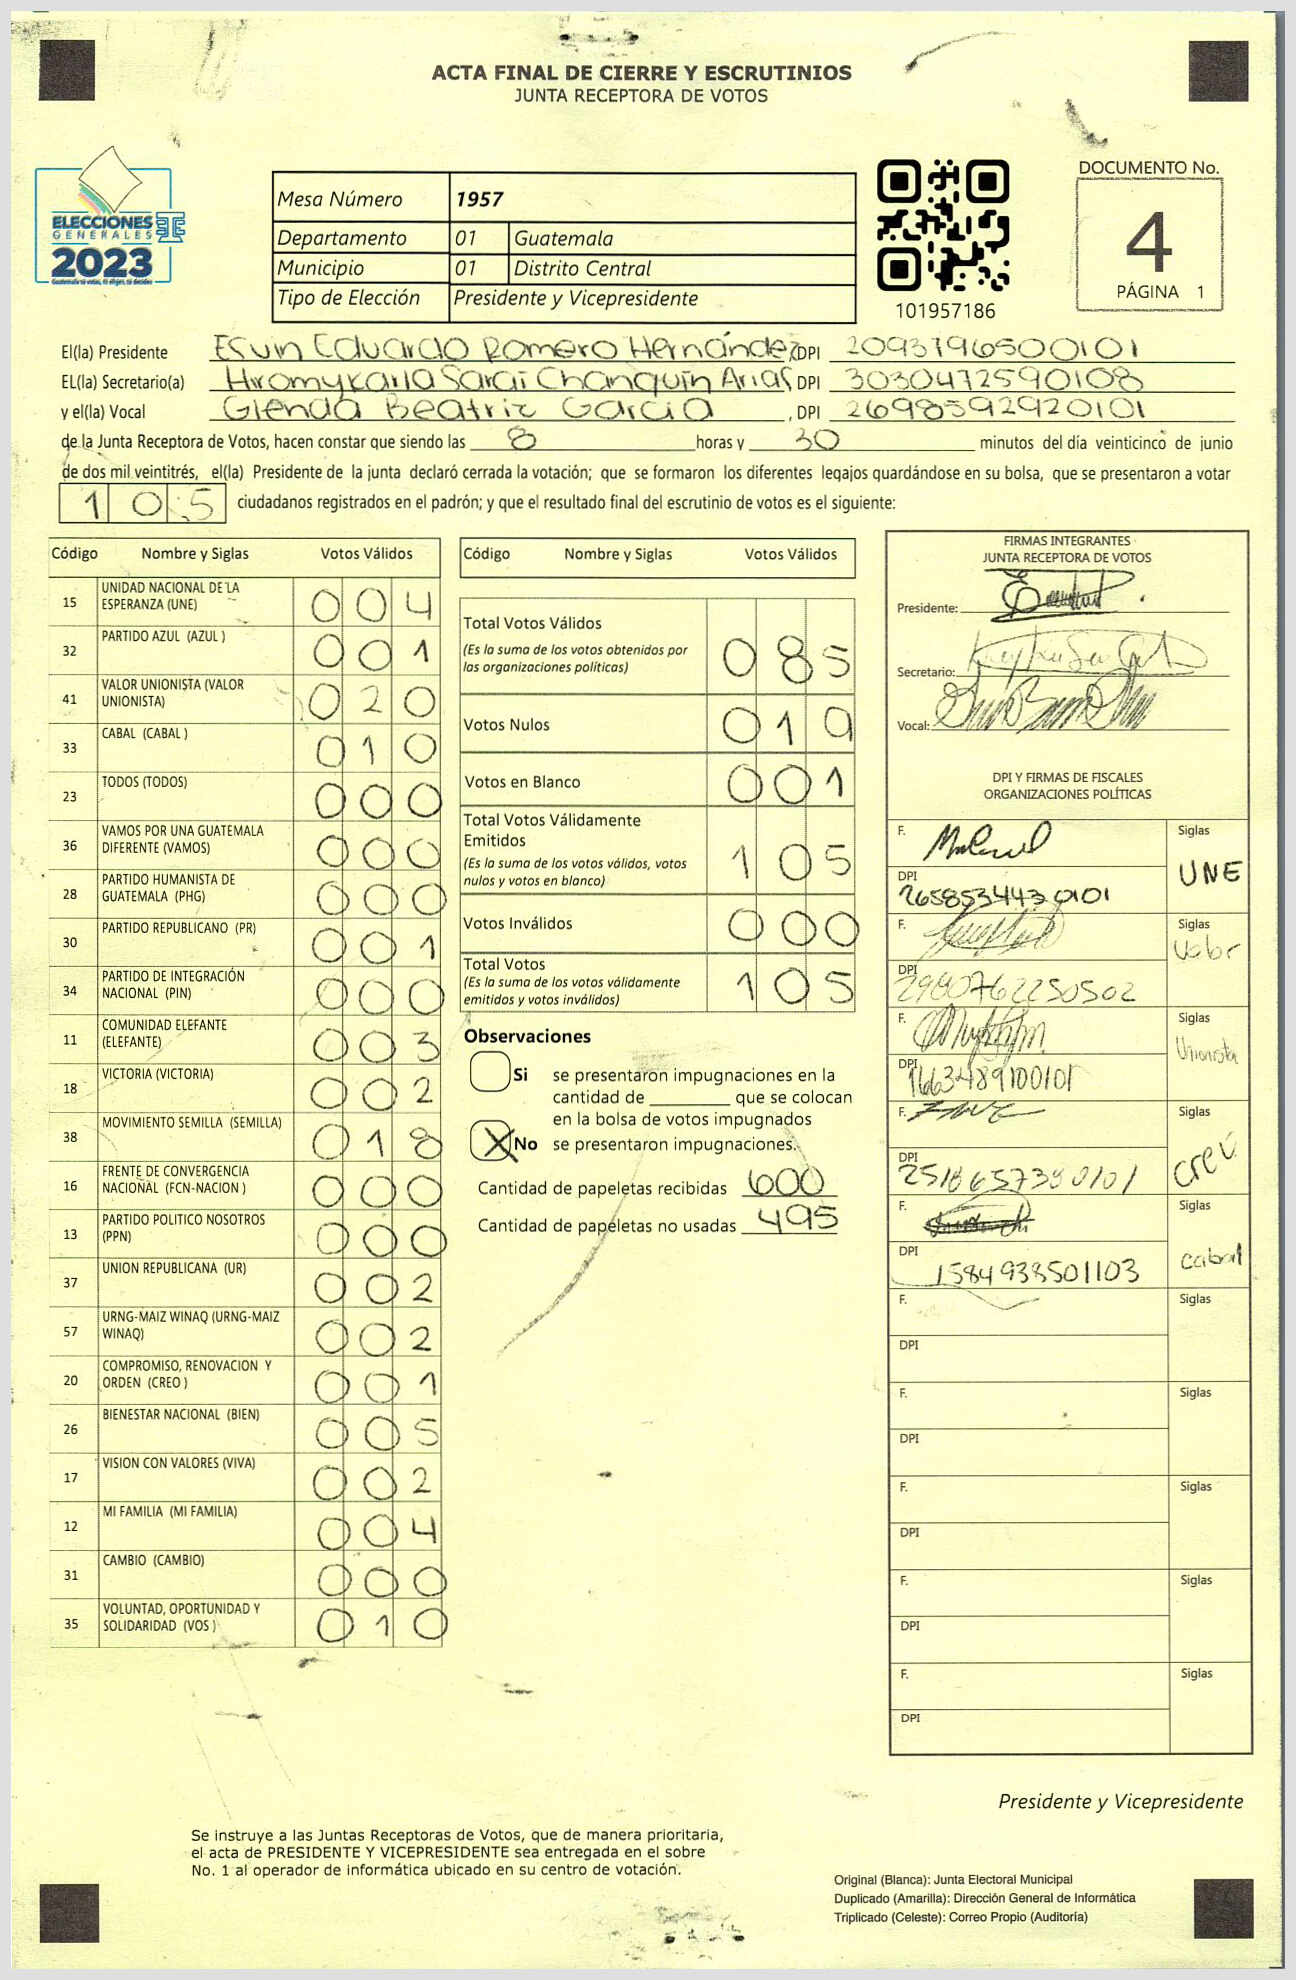 ACTA FINAL DE CIERRE Y ESCRUTINIOS
JUNTA RECEPTORA DE VOTOS
ELECCIONES
GENERALES
2023
Mesa Número 1957
Departamento 01 Guatemala
Municipio 01 Distrito Central
Tipo de Elección Presidente y Vicepresidente
101957186
DOCUMENTO No.
4
PÁGINA 1
El(la) Presidente Esvin Eduardo Romero Hernández DPI 2093796500101
EL(la) Secretario(a) Hiromykarla Sarai Chanquin Arias DPI 3030472590108
y el(la) Vocal Glenda Beatriz Garcia , DPI 2698592920101
de la Junta Receptora de Votos, hacen constar que siendo las 8 horas y 30 minutos del día veinticinco de junio
de dos mil veintitrés, el(la) Presidente de la junta declaró cerrada la votación; que se formaron los diferentes legajos guardándose en su bolsa, que se presentaron a votar
105 ciudadanos registrados en el padrón; y que el resultado final del escrutinio de votos es el siguiente:
Código Nombre y Siglas Votos Válidos
15 UNIDAD NACIONAL DE LA ESPERANZA (UNE) 004
32 PARTIDO AZUL (AZUL ) 001
41 VALOR UNIONISTA (VALOR UNIONISTA) 020
33 CABAL (CABAL ) 010
23 TODOS (TODOS) 000
36 VAMOS POR UNA GUATEMALA DIFERENTE (VAMOS) 000
28 PARTIDO HUMANISTA DE GUATEMALA (PHG) 000
30 PARTIDO REPUBLICANO (PR) 001
34 PARTIDO DE INTEGRACIÓN NACIONAL (PIN) 000
11 COMUNIDAD ELEFANTE (ELEFANTE) 003
18 VICTORIA (VICTORIA) 002
38 MOVIMIENTO SEMILLA (SEMILLA) 018
16 FRENTE DE CONVERGENCIA NACIONAL (FCN-NACION ) 000
13 PARTIDO POLITICO NOSOTROS (PPN) 000
37 UNION REPUBLICANA (UR) 002
57 URNG-MAIZ WINAQ (URNG-MAIZ WINAQ) 002
20 COMPROMISO, RENOVACION Y ORDEN (CREO ) 001
26 BIENESTAR NACIONAL (BIEN) 005
17 VISION CON VALORES (VIVA) 002
12 MI FAMILIA (MI FAMILIA) 004
31 CAMBIO (CAMBIO) 000
35 VOLUNTAD, OPORTUNIDAD Y SOLIDARIDAD (VOS ) 010
Código Nombre y Siglas Votos Válidos
Total Votos Válidos 085
(Es la suma de los votos obtenidos por
las organizaciones políticas)
Votos Nulos 019
Votos en Blanco 001
Total Votos Válidamente
Emitidos 105
(Es la suma de los votos válidos, votos
nulos y votos en blanco)
Votos Inválidos 000
Total Votos 105
(Es la suma de los votos válidamente
emitidos y votos inválidos)
Observaciones
Si se presentaron impugnaciones en la
cantidad de ________ que se colocan
en la bolsa de votos impugnados
X No se presentaron impugnaciones.
Cantidad de papeletas recibidas 600
Cantidad de papeletas no usadas 495
FIRMAS INTEGRANTES
JUNTA RECEPTORA DE VOTOS
Presidente:
Secretario:
Vocal:
DPI Y FIRMAS DE FISCALES
ORGANIZACIONES POLÍTICAS
F. Siglas
UNE
DPI
2658534430101
F. Siglas
Valor
DPI
2980762250502
F. Siglas
Unionista
DPI
1663489100101
F. Siglas
creo
DPI
2518657380101
F. Siglas
cabal
DPI
1584938501103
F. Siglas
DPI
F. Siglas
DPI
F. Siglas
DPI
F. Siglas
DPI
F. Siglas
DPI
Presidente y Vicepresidente
Se instruye a las Juntas Receptoras de Votos, que de manera prioritaria,
el acta de PRESIDENTE Y VICEPRESIDENTE sea entregada en el sobre
No. 1 al operador de informática ubicado en su centro de votación.
Original (Blanca): Junta Electoral Municipal
Duplicado (Amarilla): Dirección General de Informática
Triplicado (Celeste): Correo Propio (Auditoría)